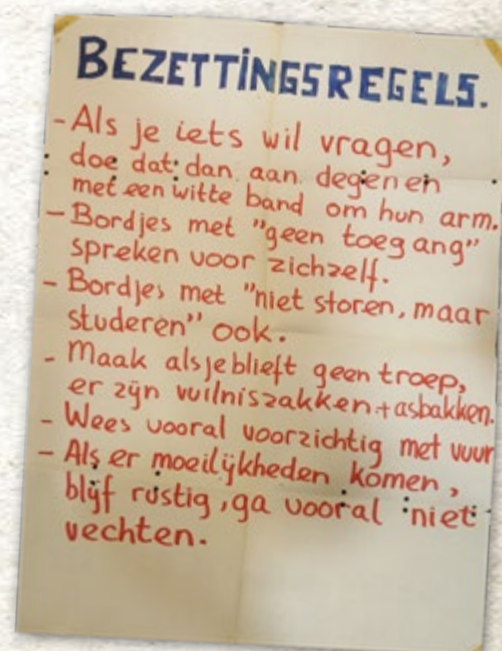 BEZETTINGSREGELS.
- Als je iets wil vragen,
doe dat dan aan degenen
met een witte band om hun arm.
- Bordjes met "geen toegang"
spreken voor zichzelf.
- Bordjes met "niet storen, maar
studeren" ook.
- Maak alsjeblieft geen troep,
er zijn vuilniszakken + asbakken.
- Wees vooral voorzichtig met vuur
- Als er moeilijkheden komen,
blijf rustig, ga vooral niet
vechten.